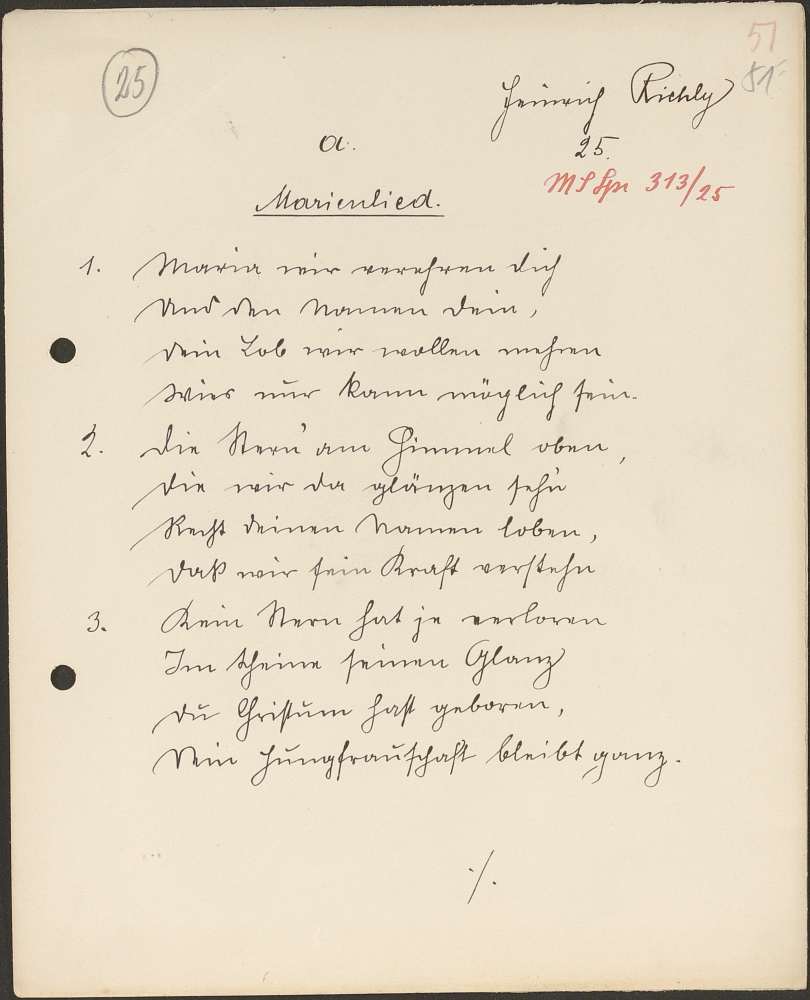 51
25
Heinrich Richly
51
a.
25.
Marienlied.
MS Spr 313/25
1. Maria wir verehren dich
Und den Namen dein,
dein Lob wir wollen mehren
Wies nur kann möglich sein.
2. Die Stern am Himmel oben,
die wir da glänzen sehn
Recht deinen Namen loben,
daß wir sein Kraft verstehn
3. Kein Stern hat je verloren
Im Scheine seinen Glanz
du Christum hast geboren,
Dein Jungfrauschaft bleibt ganz.
./.